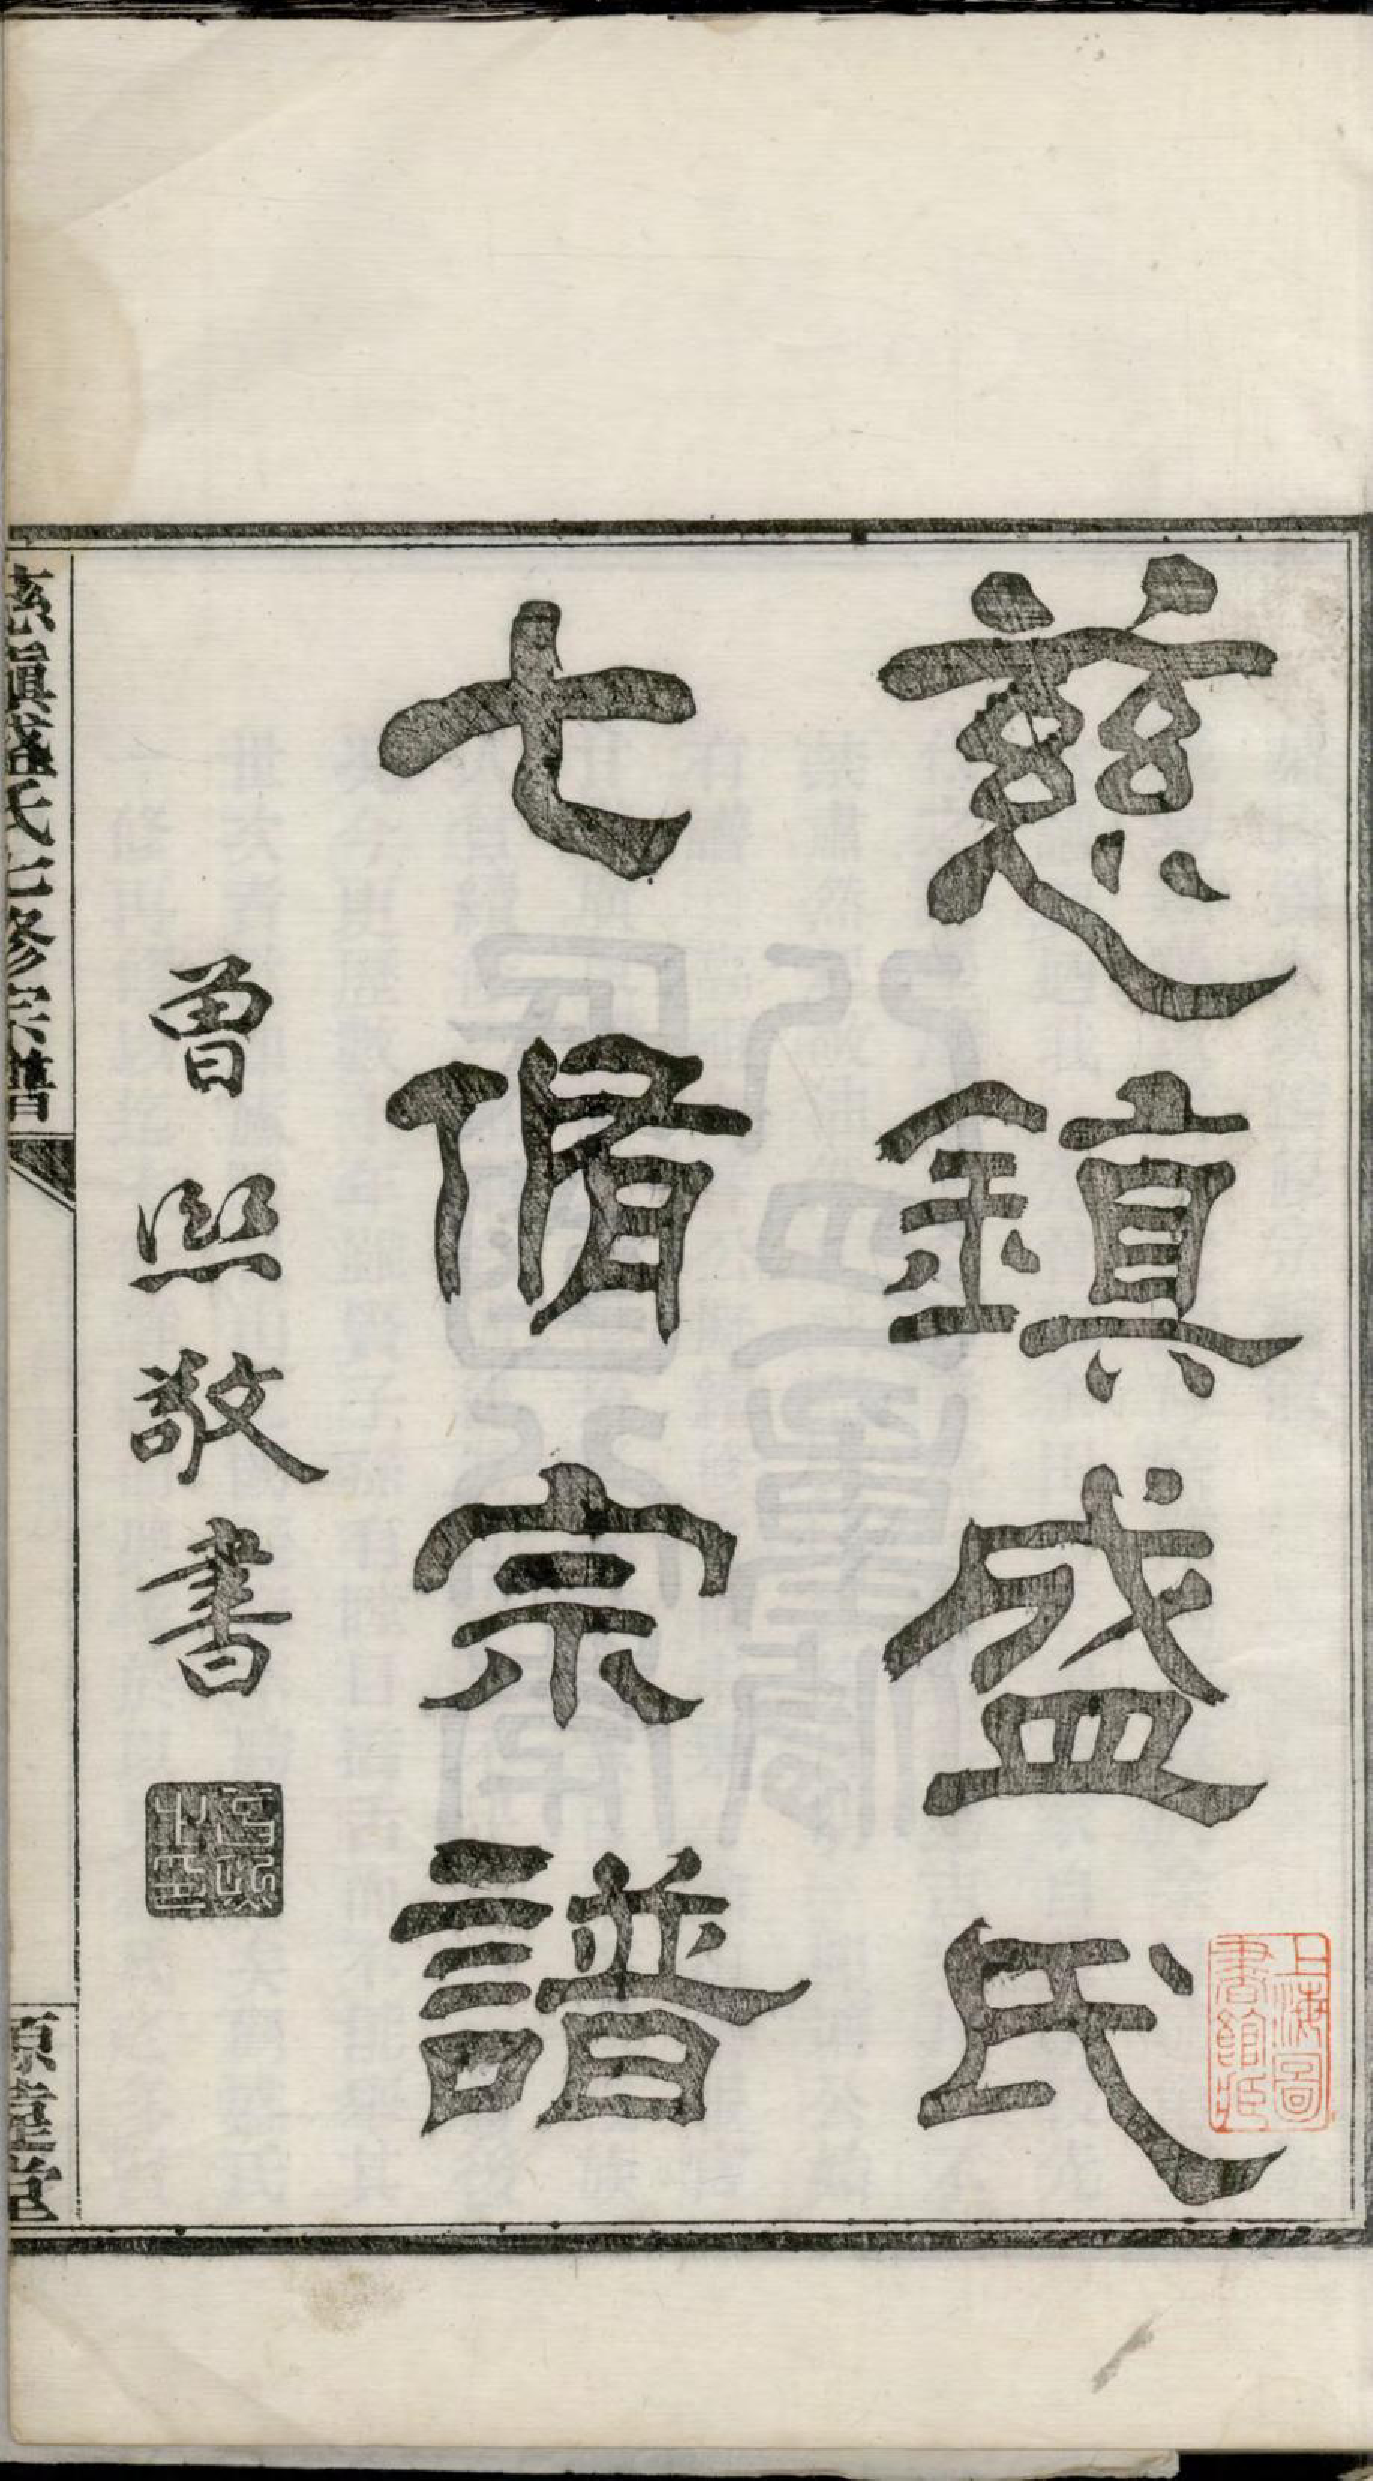 慈鎮盛氏
七脩宗譜
曾熙敬書
上海圖
書館藏
慈鎮盛氏七修宗譜